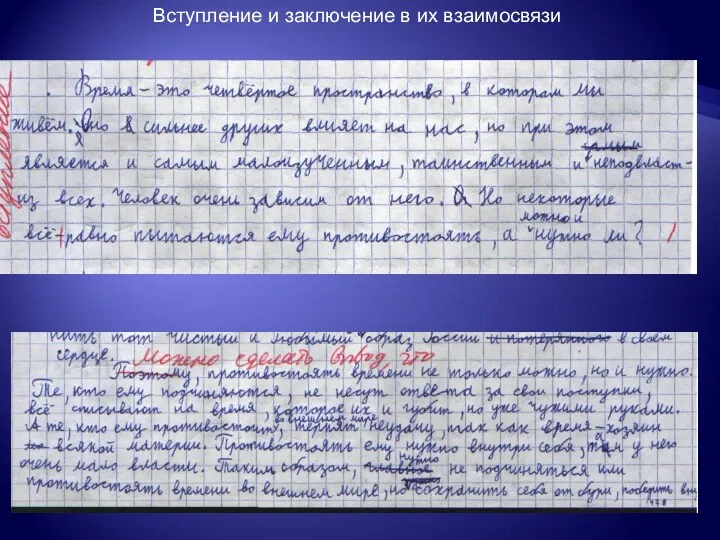 Вступление и заключение в их взаимосвязи
Время – это четвёртое пространство, в котором мы
живём. Оно сильнее других влияет на нас, но при этом
является и самым малоизученным, таинственным и самым неподвласт-
из всех. Человек очень зависим от него. Но некоторые
всё равно пытаются ему противостоять, а можно и нужно ли?
вступление
нить тот чистый и любимый образ России и потерянного в своём
сердце. Можно сделать вывод, что
Поэтому, противостоять времени не только можно, но и нужно.
Те, кто ему подчиняются, не несут ответа за свои поступки,
всё списывают на время, которое их и губит, но уже чужими руками.
А те, кто ему противостоит, во внешнем мире терпят неудачу, так как время – хозяин
всякой материи. Противостоять ему нужно внутри себя, там у него
очень мало власти. Таким образом, главное нужно не подчиняться или
противостоять времени во внешнем мире, но сохранить себя от бури, победить